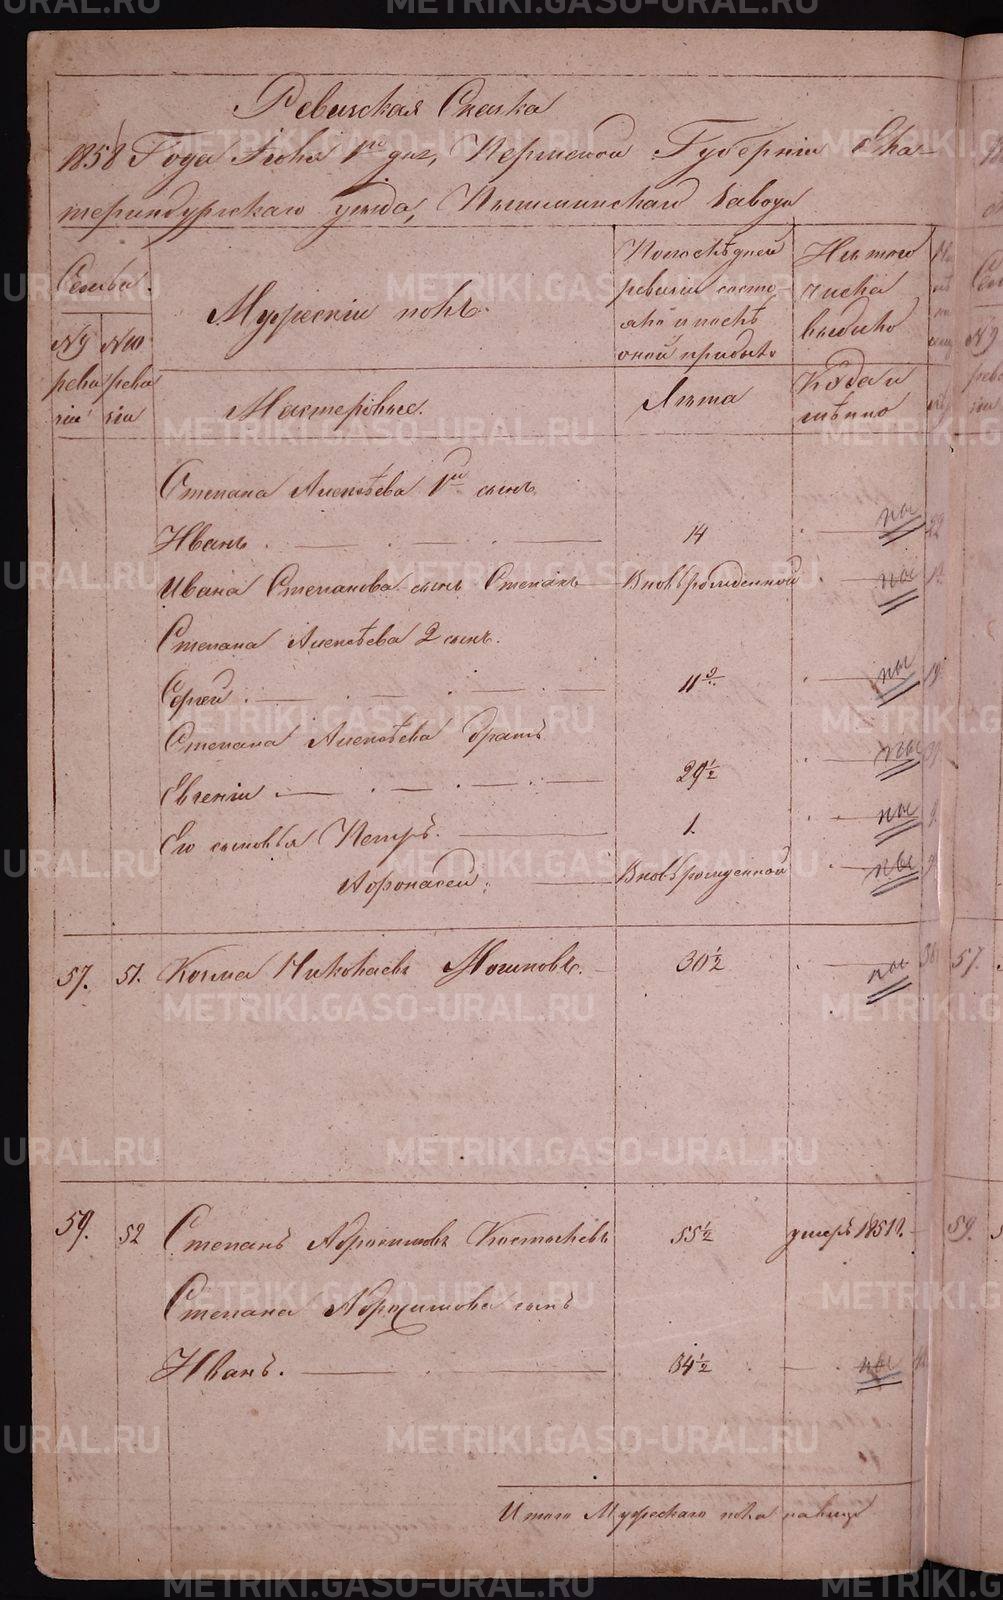 Ревизская Сказка
1858 Года Июня 1го дня, Пермской Губерніи Ека-
теринбургскаго уезда, Пышминскаго Завода
Семьи. Мужескій полъ. Последней ревизіи состо- яло и после оной прибыло Изъ того числа выбыло
№ 9 ревизіи № 10 ревизіи Мастеровые. Лета Когда и именно
Степана Алексѣева 1й сынъ
Иванъ. 14 на
Ивана Степанова сынъ Степанъ Вновьрожденной на
Степана Алексѣева 2 сынъ.
Сергей 11 на
Степана Алексѣева братъ
Евгеній 29½ на
Его сыновья Петръ. 1. на
Афонасей: Вновьрожденной на
57. 51. Козма Николаевъ Логиновъ. 30½ на
59. 52 Степанъ Абросимовъ Костылевъ 55½ умеръ 1851 г.
Степана Абросимова сынъ
Иванъ. 34½ на
Итого Мужескаго пола налицо
METRIKI.GASO-URAL.RU